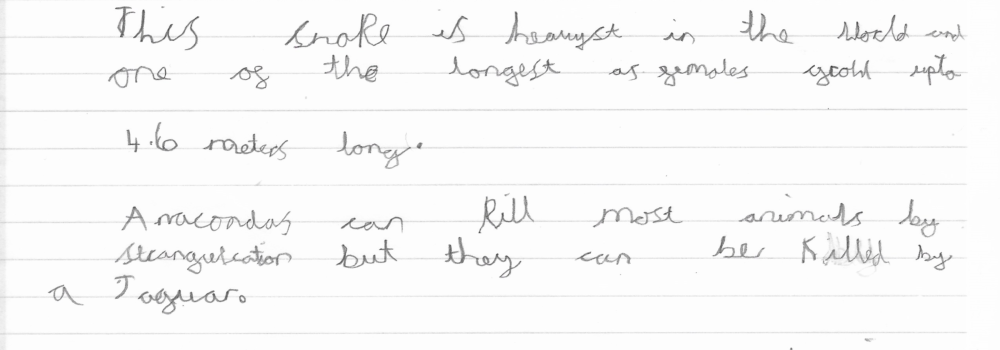 This snake is heavyst in the World and
one of the longest as females grow upto
4.6 meters long.
Anacondas can kill most animals by
strangulation but they can be Killed by
a Jaguar.